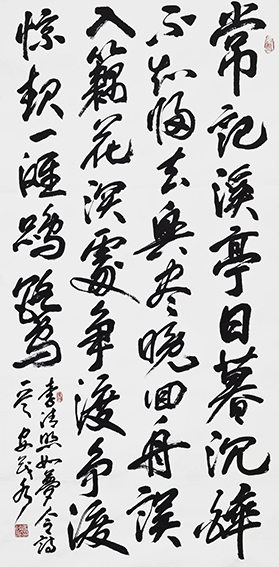 常記溪亭日暮沉醉
不知歸去興尽晚回舟誤
入藕花深處争渡争渡
惊起一灘鷗鷺
李清照如夢令詩